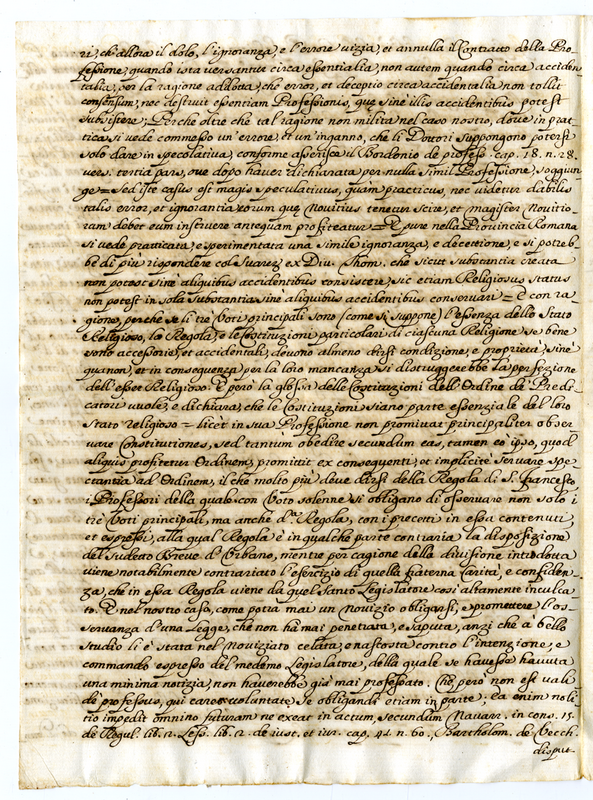 ri, ch'allora il dolo, l'ignoranza, e l'errore vizia, et annulla il Contratto della Pro-
fessione, quando ista versantur circa essentialia, non autem quando circa acciden-
talia, per la ragione addotta, che error, et deceptio circa accidentalia non tollit
consensum, nec destruit essentiam Professionis, quę sinè illis accidentibus potest
subsistere; Perche oltre che tal ragione non milita nel caso nostro, doue in prat-
tica si vede commesso un'errore, et un'inganno, che li Dottori suppongono potersi
solo dare in specolatiua, conforme asserisce il Bordonio de profess. cap. 18. n. 28.
vers. tertia pars, oue dopo hauer dichiarata per nulla simil Professione, soggiun-
ge = Sed iste casus est magis speculatiuus, quàm practicus, nec videtur dabilis
talis error, et ignorantia eorum quę Nouitius tenetur scire, et magister Nouitio-
rum debet eum instruere antequam profiteatur = E pure nella Prouincia Romana
si vede praticata, e sperimentata una simile ignoranza, e decettione, e si potreb-
be di più rispondere col Suarez ex Diu. Thom. che sicut substantia creata
non potest sinè aliquibus accidentibus consistere, sic etiam Religiosus status
non potest in sola substantia sinè aliquibus accidentibus conseruari = E con ra-
gione, perche se li tre Voti principali sono (come si suppone) l'essenza dello Stato
Religioso, la Regola, e le Costituzioni particolari di ciascuna Religione se bene
sono accessorij, et accidentali, deuono almeno dirsi condizione, e proprietà, sinè
qua non, et in consequenza per la loro mancanza si distruggerebbe la perfezione
dell'esser Religioso. E però la glossa delle Costitazioni dell'Ordine de Predi-
catori vuole, e dichiara, che le Costituzioni siano parte essenziale del loro
Stato religioso = licet in sua Professione non promittat principaliter obser-
uare Constitutiones, sed tantùm obedire secundùm eas, tamen eo ipso, quod
aliquis profitetur Ordinem, promittit ex consequenti, et implicitè seruare spe-
ctantia ad Ordinem, il che molto più deue dirsi della Regola di S. Francesco,
i Professori della quale con Voto solenne si obligano di osseruare non solo i
tre Voti principali, ma anche dᵃ Regola, con i precetti in essa contenuti,
et espressi, alla qual Regola è in qualche parte contraria la disposizione
del sudetto Breue d'Urbano, mentre per cagione della diuisione introdotta
viene notabilmente contrariato l'esercizio di quella fraterna Carità, e confiden-
za, che in essa Regola viene da quel santo Legislatore così altamente inculca-
to. E nel nostro caso, come potrà mai un Nouizio obligarsi, e promettere l'os-
seruanza d'una Legge, che non hà mai penetrata, e saputa, anzi che à bello
studio li è stata nel Nouiziato celata, e nascosta contro l'intenzione, e
commando espresso del medemo Legislatore, della quale se hauesse hauuta
una minima notizia, non hauerebbe già mai professato. Chè però non est vali-
dè professus, qui caret voluntate se obligandi etiam in parte; ea enim noli-
tio impedit omnino futuram ne exeat in actum, secundùm Nauarr. in cons. 15.
de Regul. lib. 2. Less. lib. 2. de iust. et iur. cap. 41. n. 60., Bartholom. de Vecch.
disput.